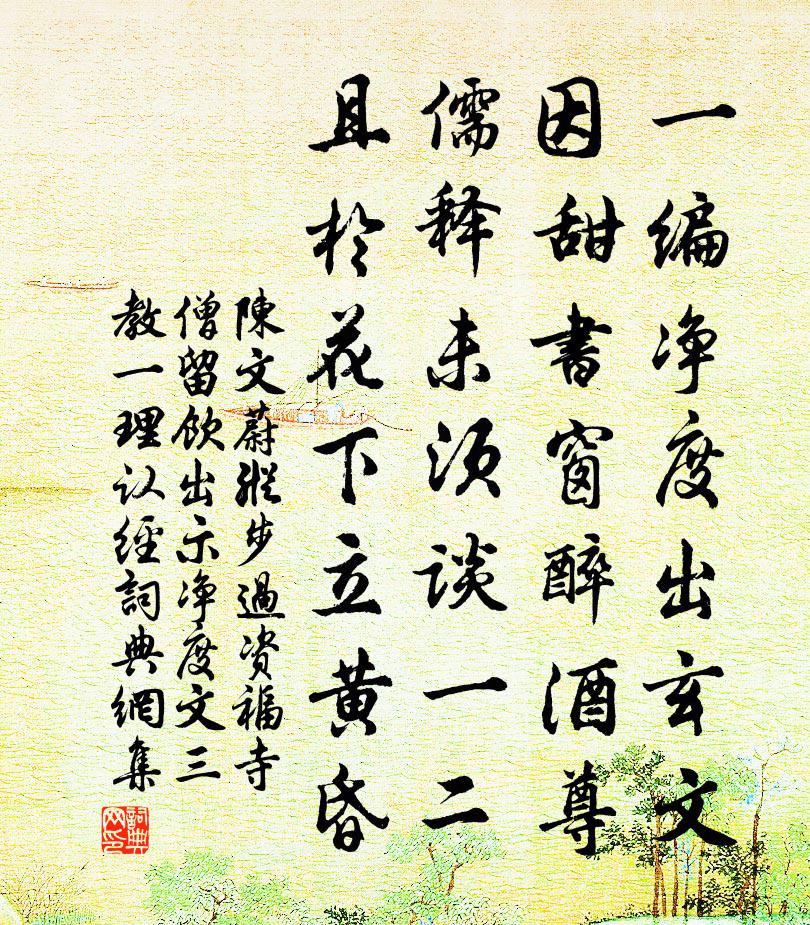 一编净度出玄文
因甜書窗醉酒尊
儒释未须谈一二
且於花下立黄昏
陳文蔚縱步過资福寺
僧留飲出示净度文三
教一理认經詞典網集
詞典网印